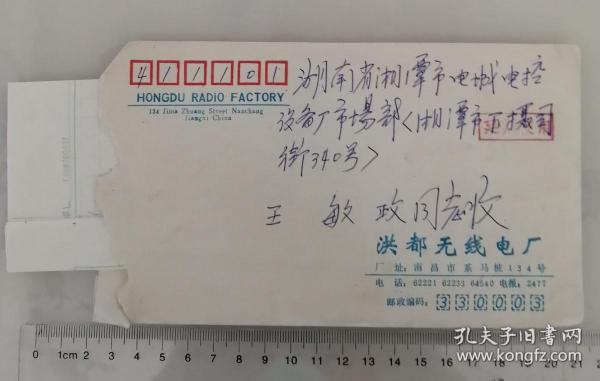 411101
HONGDU RADIO FACTORY
134 Jima Zhuang Street Nanchang
Jiangxi China
湖南省湘潭市电城电控
设备厂市場部<湘潭市下摄司
街340号>
王 敏 政同志收
洪都无线电厂
厂 址:南昌市系马桩134号
电 话:62221 62233 64540 电报:2477
邮政编码:330003
0 1cm 2 3 4 5 6 7 8 9 10 11 12 13 14 15 16 17 18 19 20 21
孔夫子旧书网
www.kongfz.com